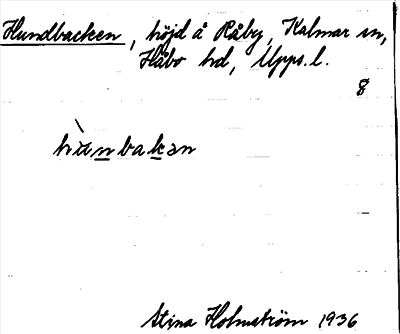 Hundbacken, höjd å Råby, Kalmar sn,
Håbo hd, Upps. l.
8
hùnbakən
Stina Holmström 1936